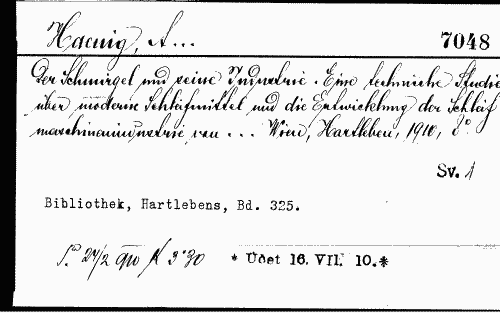 Haenig, A...
7048
Der Schmirgel und seine Industrie. Eine technische Studie
über moderne Schleifmittel und die Entwicklung der Schleif
maschinenindustrie von ... Wien, Hartleben, 1910, 8°
Sv. 1
Bibliothek, Hartlebens, Bd. 325.
24/2 910 K 3·30
* Účet 16. VII. 10.*